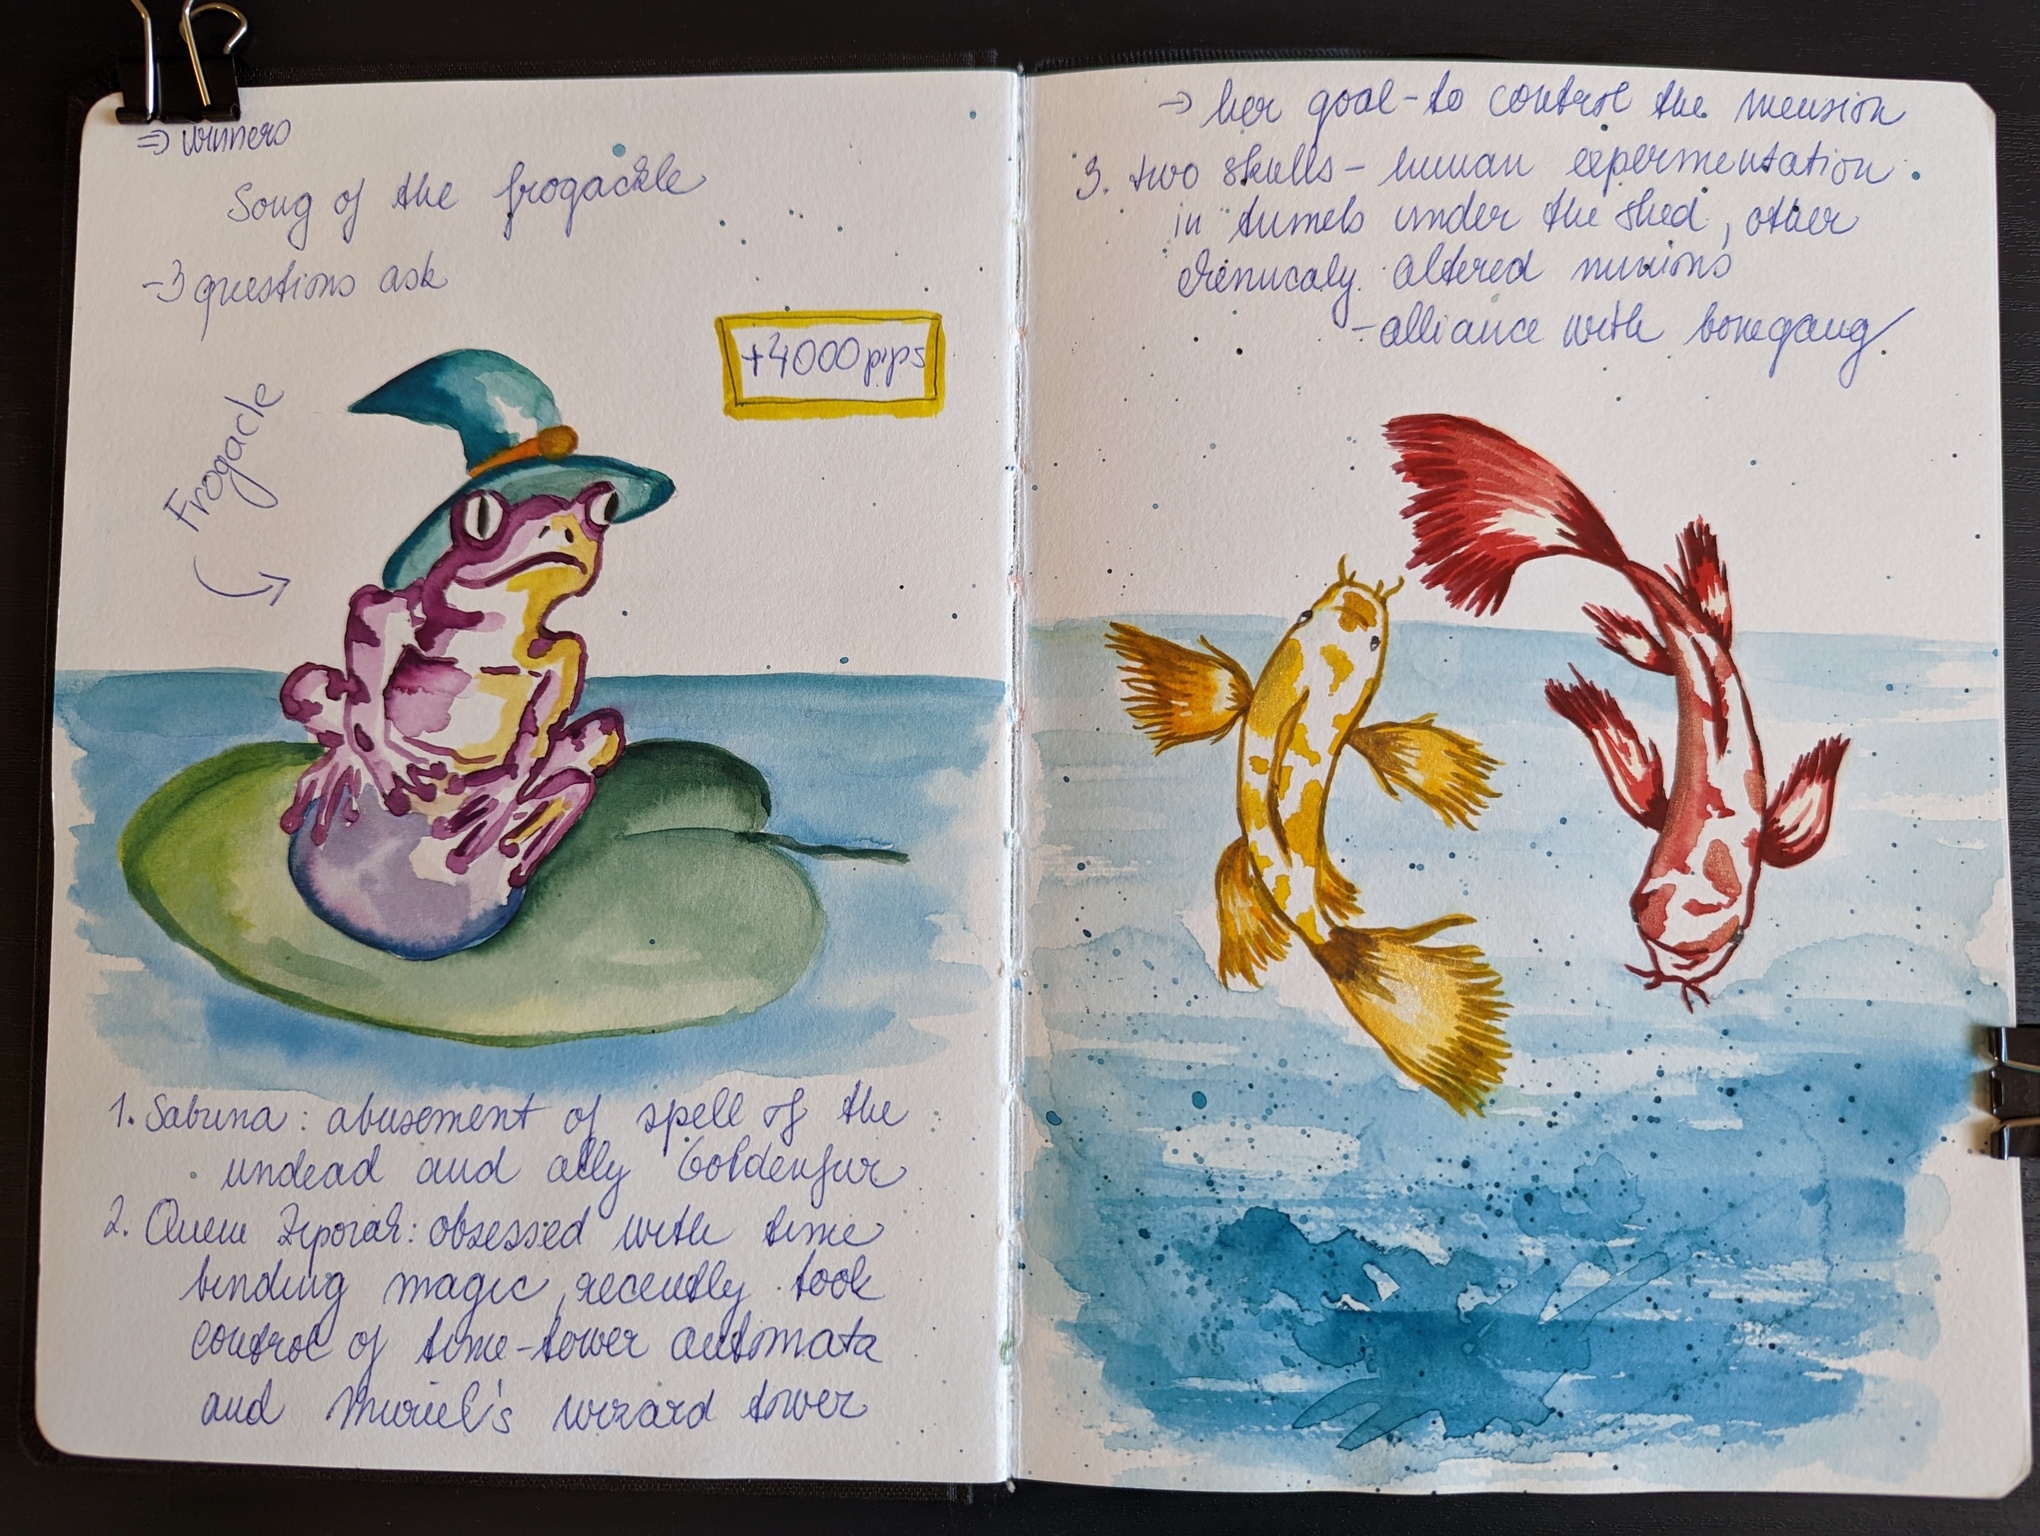 => winners
Song of the frogackle
-3 questions ask
+4000 pips
Frogacle
1. Sabrina: abusement of spell of the
undead and ally Goldenfur
2. Queen Ziporah: obsessed with time
binding magic, recently took
control of time-tower automata
and Muriel's wizard tower
-> her goal - to control the mension
3. two skulls - human expermentation
in tunnels under the shed, other
altered minions
- alliance with bonegang